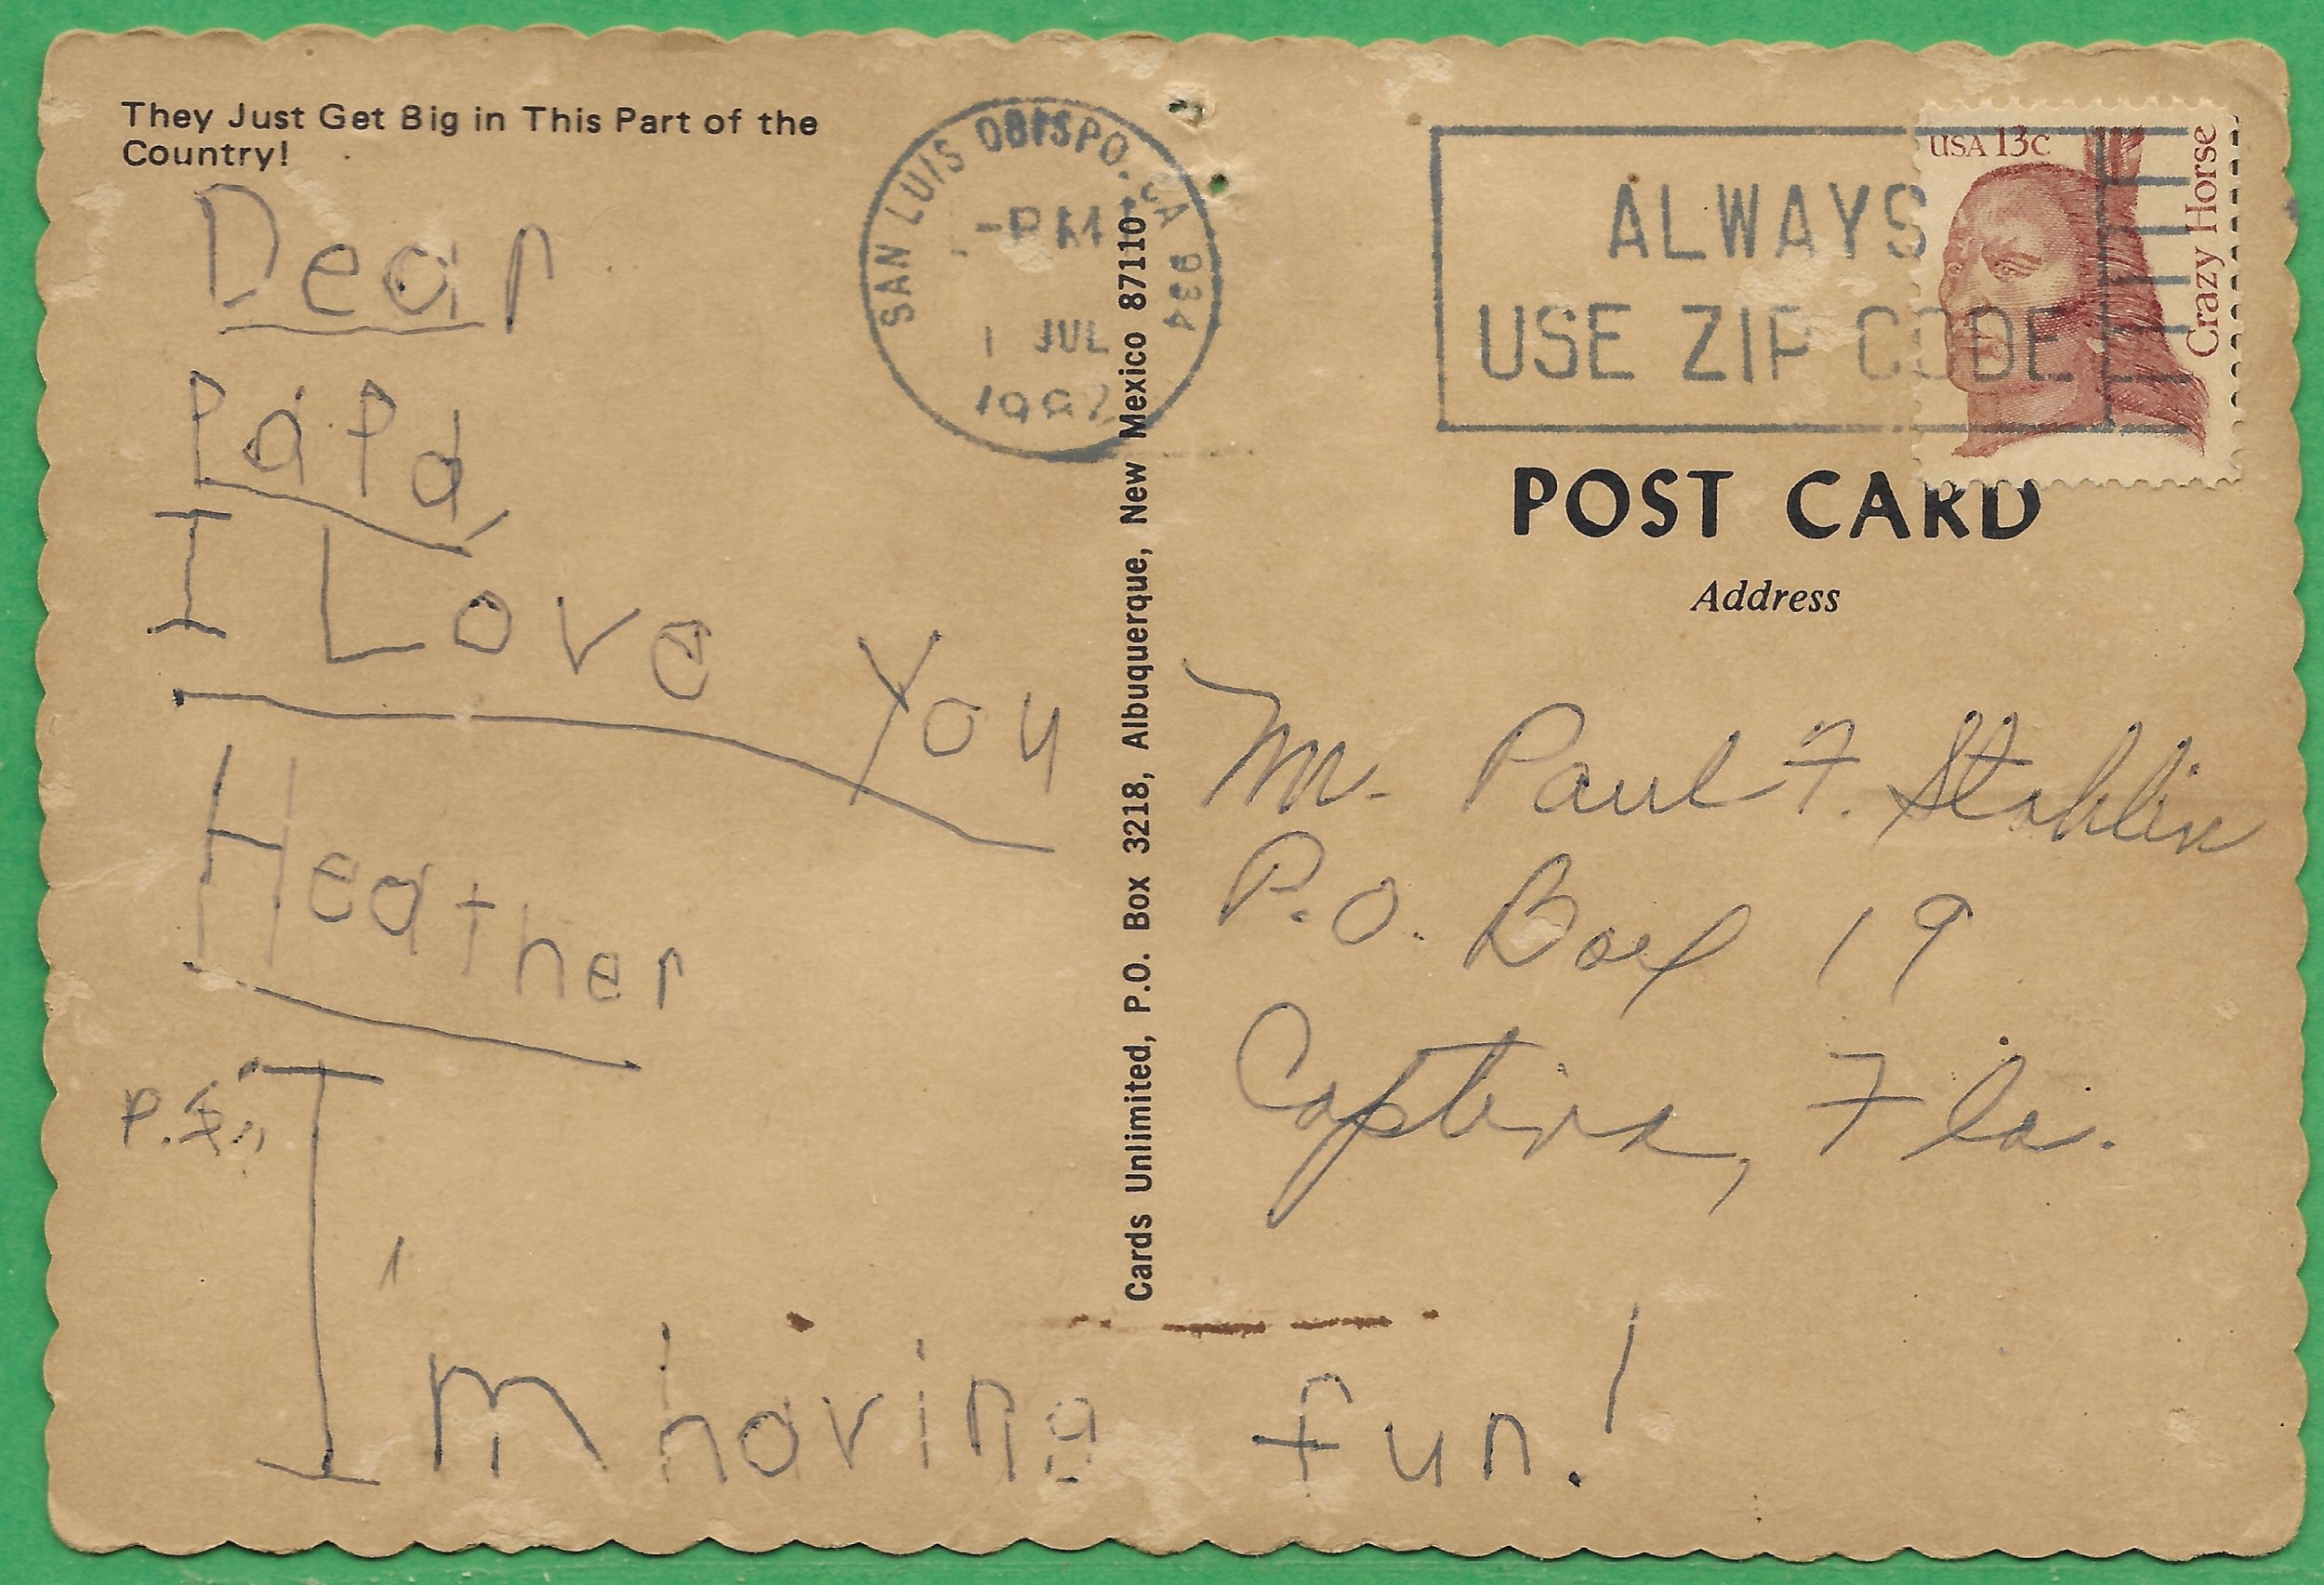 They Just Get Big in This Part of the
Country!
Dear
Papa,
I Love You
Heather
P.S.
I'm having fun!
Cards Unlimited, P.O. Box 3218, Albuquerque, New Mexico 87110
SAN LUIS OBISPO, CA 934
PM
1 JUL
ALWAYS
USE ZIP CODE
USA 13c
Crazy Horse
POST CARD
Address
Mr. Paul F. Stahlin
P.O. Box 19
Captiva, Fla.